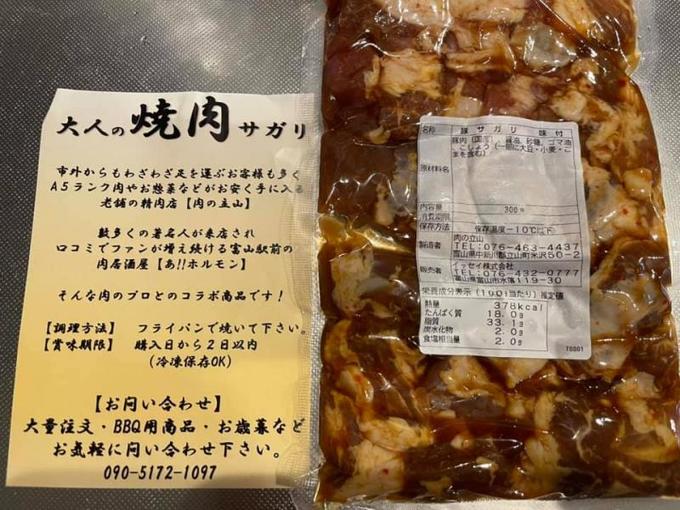 大人の焼肉サガリ
市外からもわざわざ足を運ぶお客様も多く
A5ランク肉やお惣菜などがお安く手に入る
老舗の精肉店【肉の立山】
数多くの著名人が来店され
口コミでファンが増え続ける富山駅前の
肉居酒屋【あ!!ホルモン】
そんな肉のプロとのコラボ商品です!
【調理方法】 フライパンで焼いて下さい。
【賞味期限】 購入日から2日以内
(冷凍保存OK)
【お問い合わせ】
大量注文・BBQ用商品・お歳暮など
お気軽に問い合わせ下さい。
090-5172-1097
名称 豚サガリ 味付
原材料名
豚肉(国産)、醤油、砂糖、ゴマ油
こしょう(一部に大豆・小麦・ご
まを含む)
内容量 300g
消費期限
保存方法 保存温度-10℃以下
製造者
肉の立山
TEL:076-463-4437
富山県中新川郡立山町米沢50-2
販売者
イッセイ株式会社
TEL:076-432-0777
富山県富山市水落119-30
栄養成分表示(100g当たり)推定値
熱量 378kcal
たんぱく質 18.0g
脂質 33.1g
炭水化物 2.0g
食塩相当量 2.0g